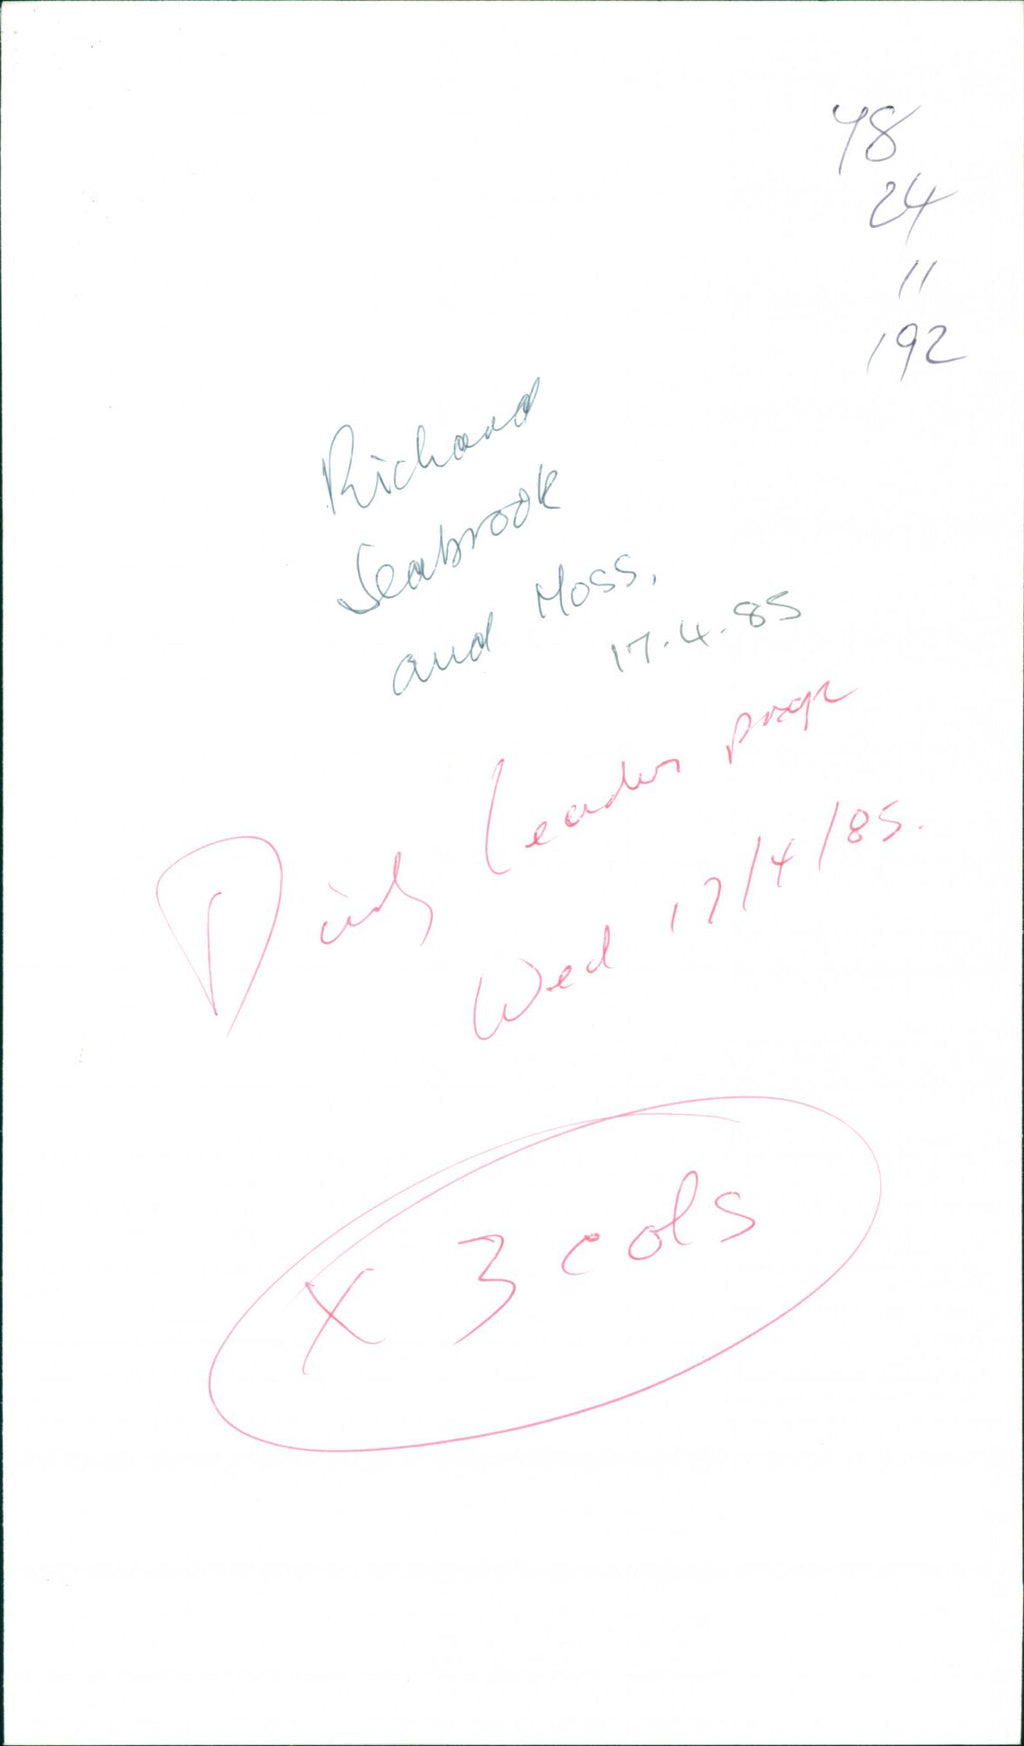 48
24
11
192
Richard
Seabrook
and Moss.
17.4.85
Leader page
Wed 17/4/85.
x 3 cols